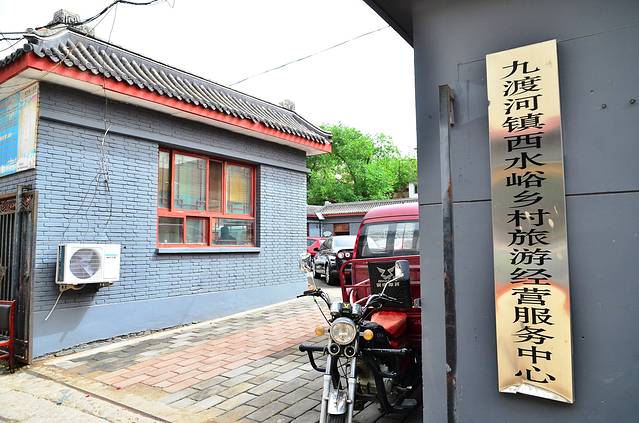 九渡河镇西水峪乡村旅游经营服务中心